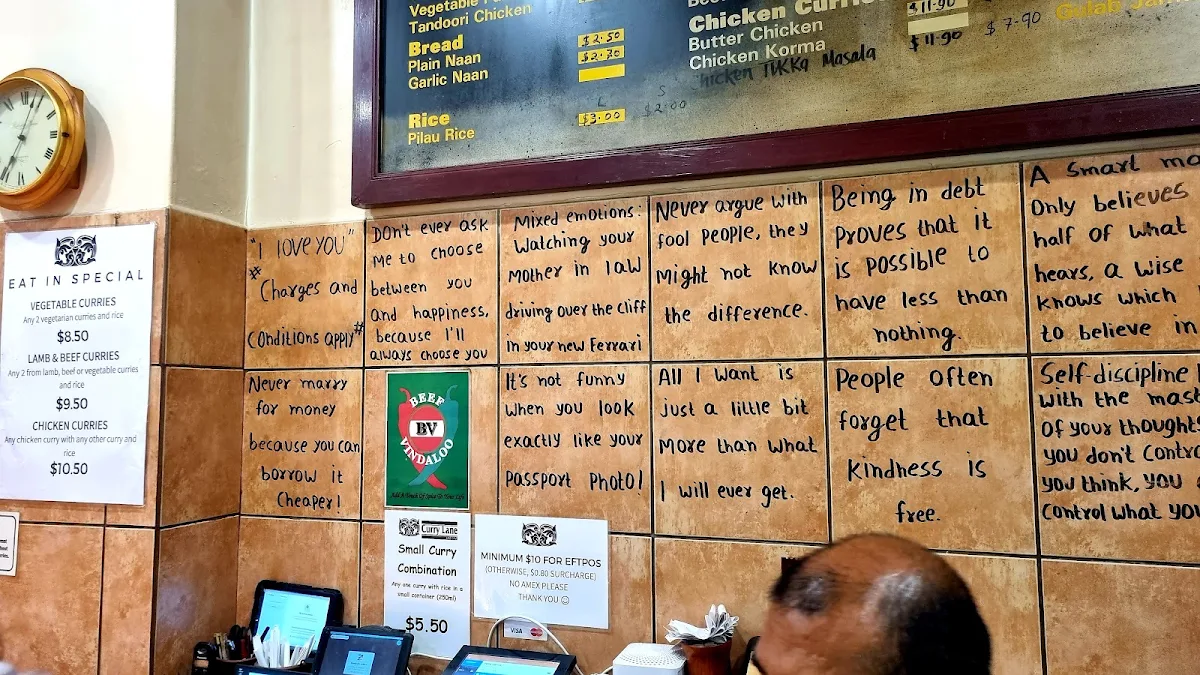 Vegetable
Tandoori Chicken
Bread
Plain Naan
Garlic Naan
$2.50
$2.70
Rice
Pilau Rice
L
$3.00
S
$2.00
Chicken
Butter Chicken
Chicken Korma
Chicken Tikka Masala
$11.90
$11.90
$7.90
Gulab
EAT IN SPECIAL
VEGETABLE CURRIES
Any 2 vegetarian curries and rice
$8.50
LAMB & BEEF CURRIES
Any 2 from lamb, beef or vegetable curries
and rice
$9.50
CHICKEN CURRIES
Any chicken curry with any other curry and
rice
$10.50
"I LOVE YOU"
* Charges and
Conditions apply*
Don't ever ask
me to choose
between you
and happiness,
because I'll
always choose you
Mixed emotions:
Watching your
mother in law
driving over the cliff
in your new Ferrari
Never argue with
fool people, they
might not know
the difference.
Being in debt
proves that it
is possible to
have less than
nothing.
A smart
Only believes
half of what
hears, a wise
knows which
to believe in
Never marry
for money
because you can
borrow it
Cheaper!
BEEF
BV
VINDALOO
Add A Touch Of Spice To Your Life
It's not funny
when you look
exactly like your
passport photo!
All I want is
just a little bit
more than what
I will ever get.
People often
forget that
kindness is
free.
Self-discipline
with the
Of your thoughts
you don't
you think, you
control what you
Curry Lane
Small Curry
Combination
Any one curry with rice in a
small container (250ml)
$5.50
MINIMUM $10 FOR EFTPOS
(OTHERWISE, $0.80 SURCHARGE)
NO AMEX PLEASE
THANK YOU ☺
VISA